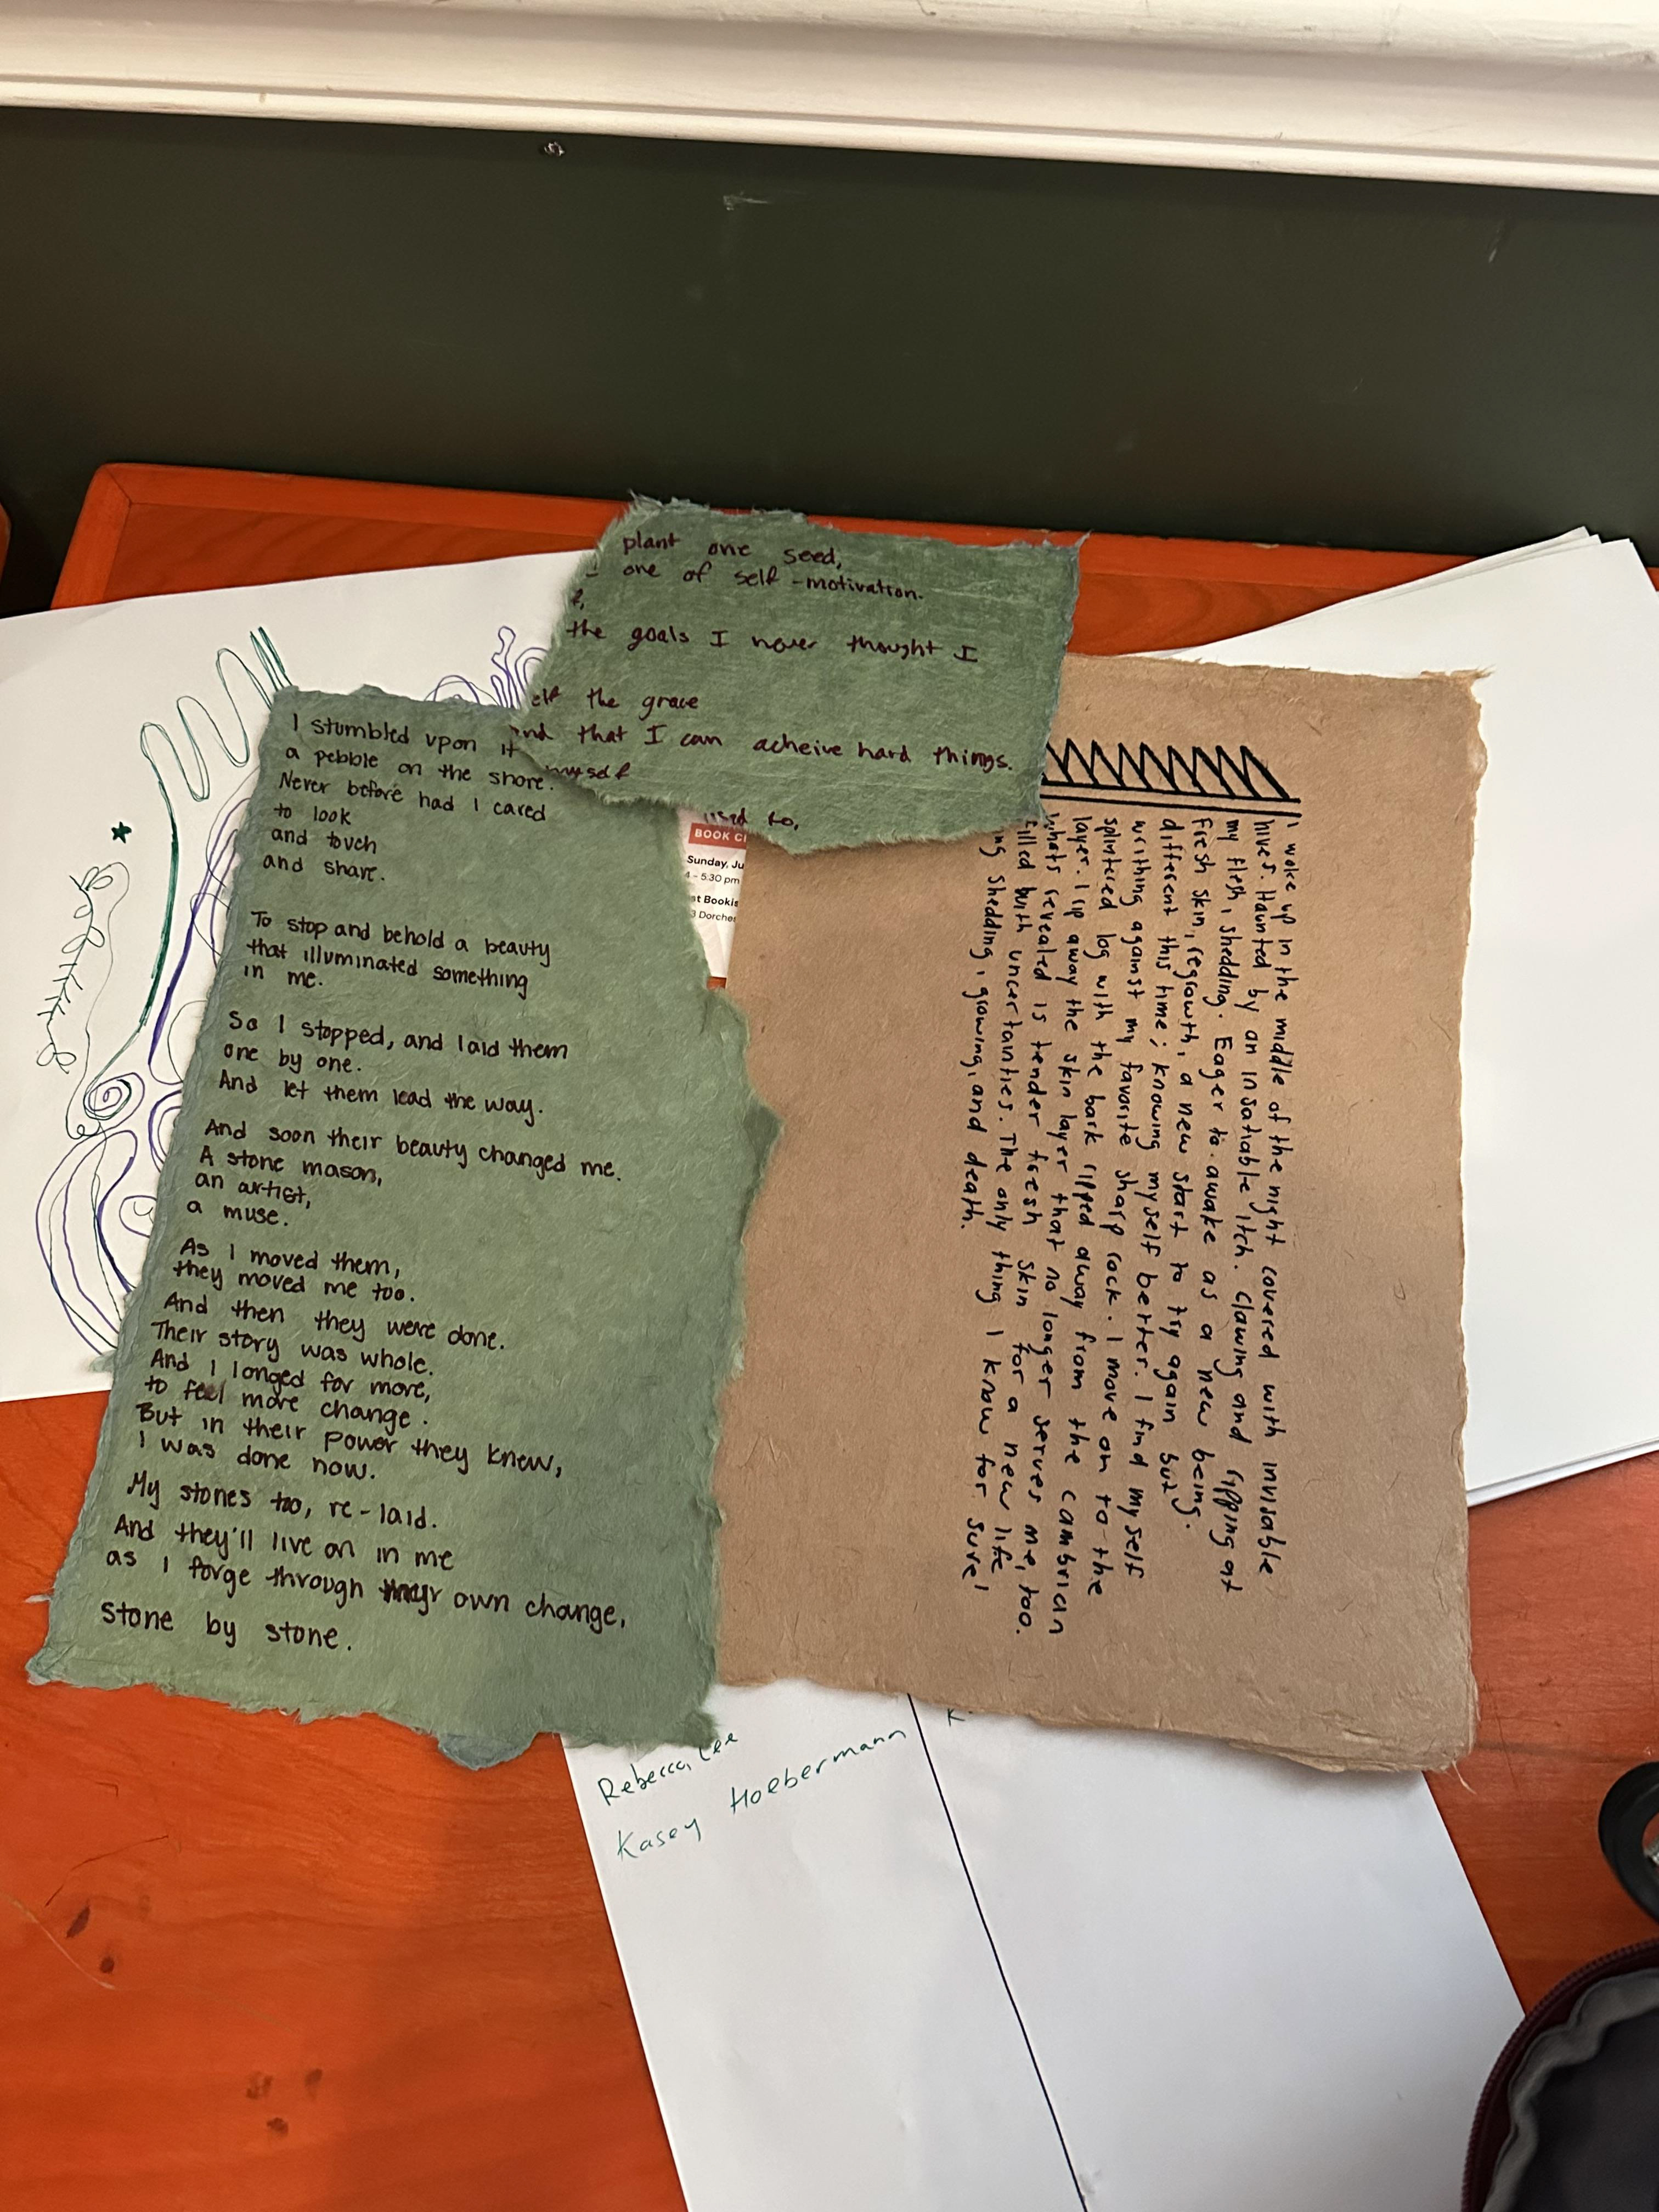 plant one seed,
one of self-motivation.
the goals I never thought I
elf the grace
and that I can acheive hard things.
myself
used to,
I stumbled upon it
a pebble on the shore.
Never before had I cared
to look
and touch
and share.
To stop and behold a beauty
that illuminated something
in me.
So I stopped, and laid them
one by one.
And let them lead the way.
And soon their beauty changed me.
A stone mason,
an artist,
a muse.
As I moved them,
they moved me too.
And then they were done.
Their story was whole.
And I longed for more,
to feel more change.
But in their power they knew,
I was done now.
My stones too, re-laid.
And they'll live on in me
as I forge through my own change,
stone by stone.
BOOK CL
Sunday, Ju
4 - 5:30 pm
st Bookis
3 Dorches
I woke up in the middle of the night covered with invisable
hives. Haunted by an insatiable itch. clawing and ripping at
my flesh, shedding. Eager to awake as a new being.
Fresh skin, regrowth, a new start to try again but
different this time; knowing myself better. I find myself
writhing against my favorite sharp rock. I move on to the
splintered log with the bark ripped away from the cambrian
layer. I rip away the skin layer that no longer serves me, too.
whats revealed is tender fresh skin for a new life
filled with uncertainties. The only thing I know for sure,
ng shedding, growing, and death.
Rebecca Lee
Kasey Hoebermann
K